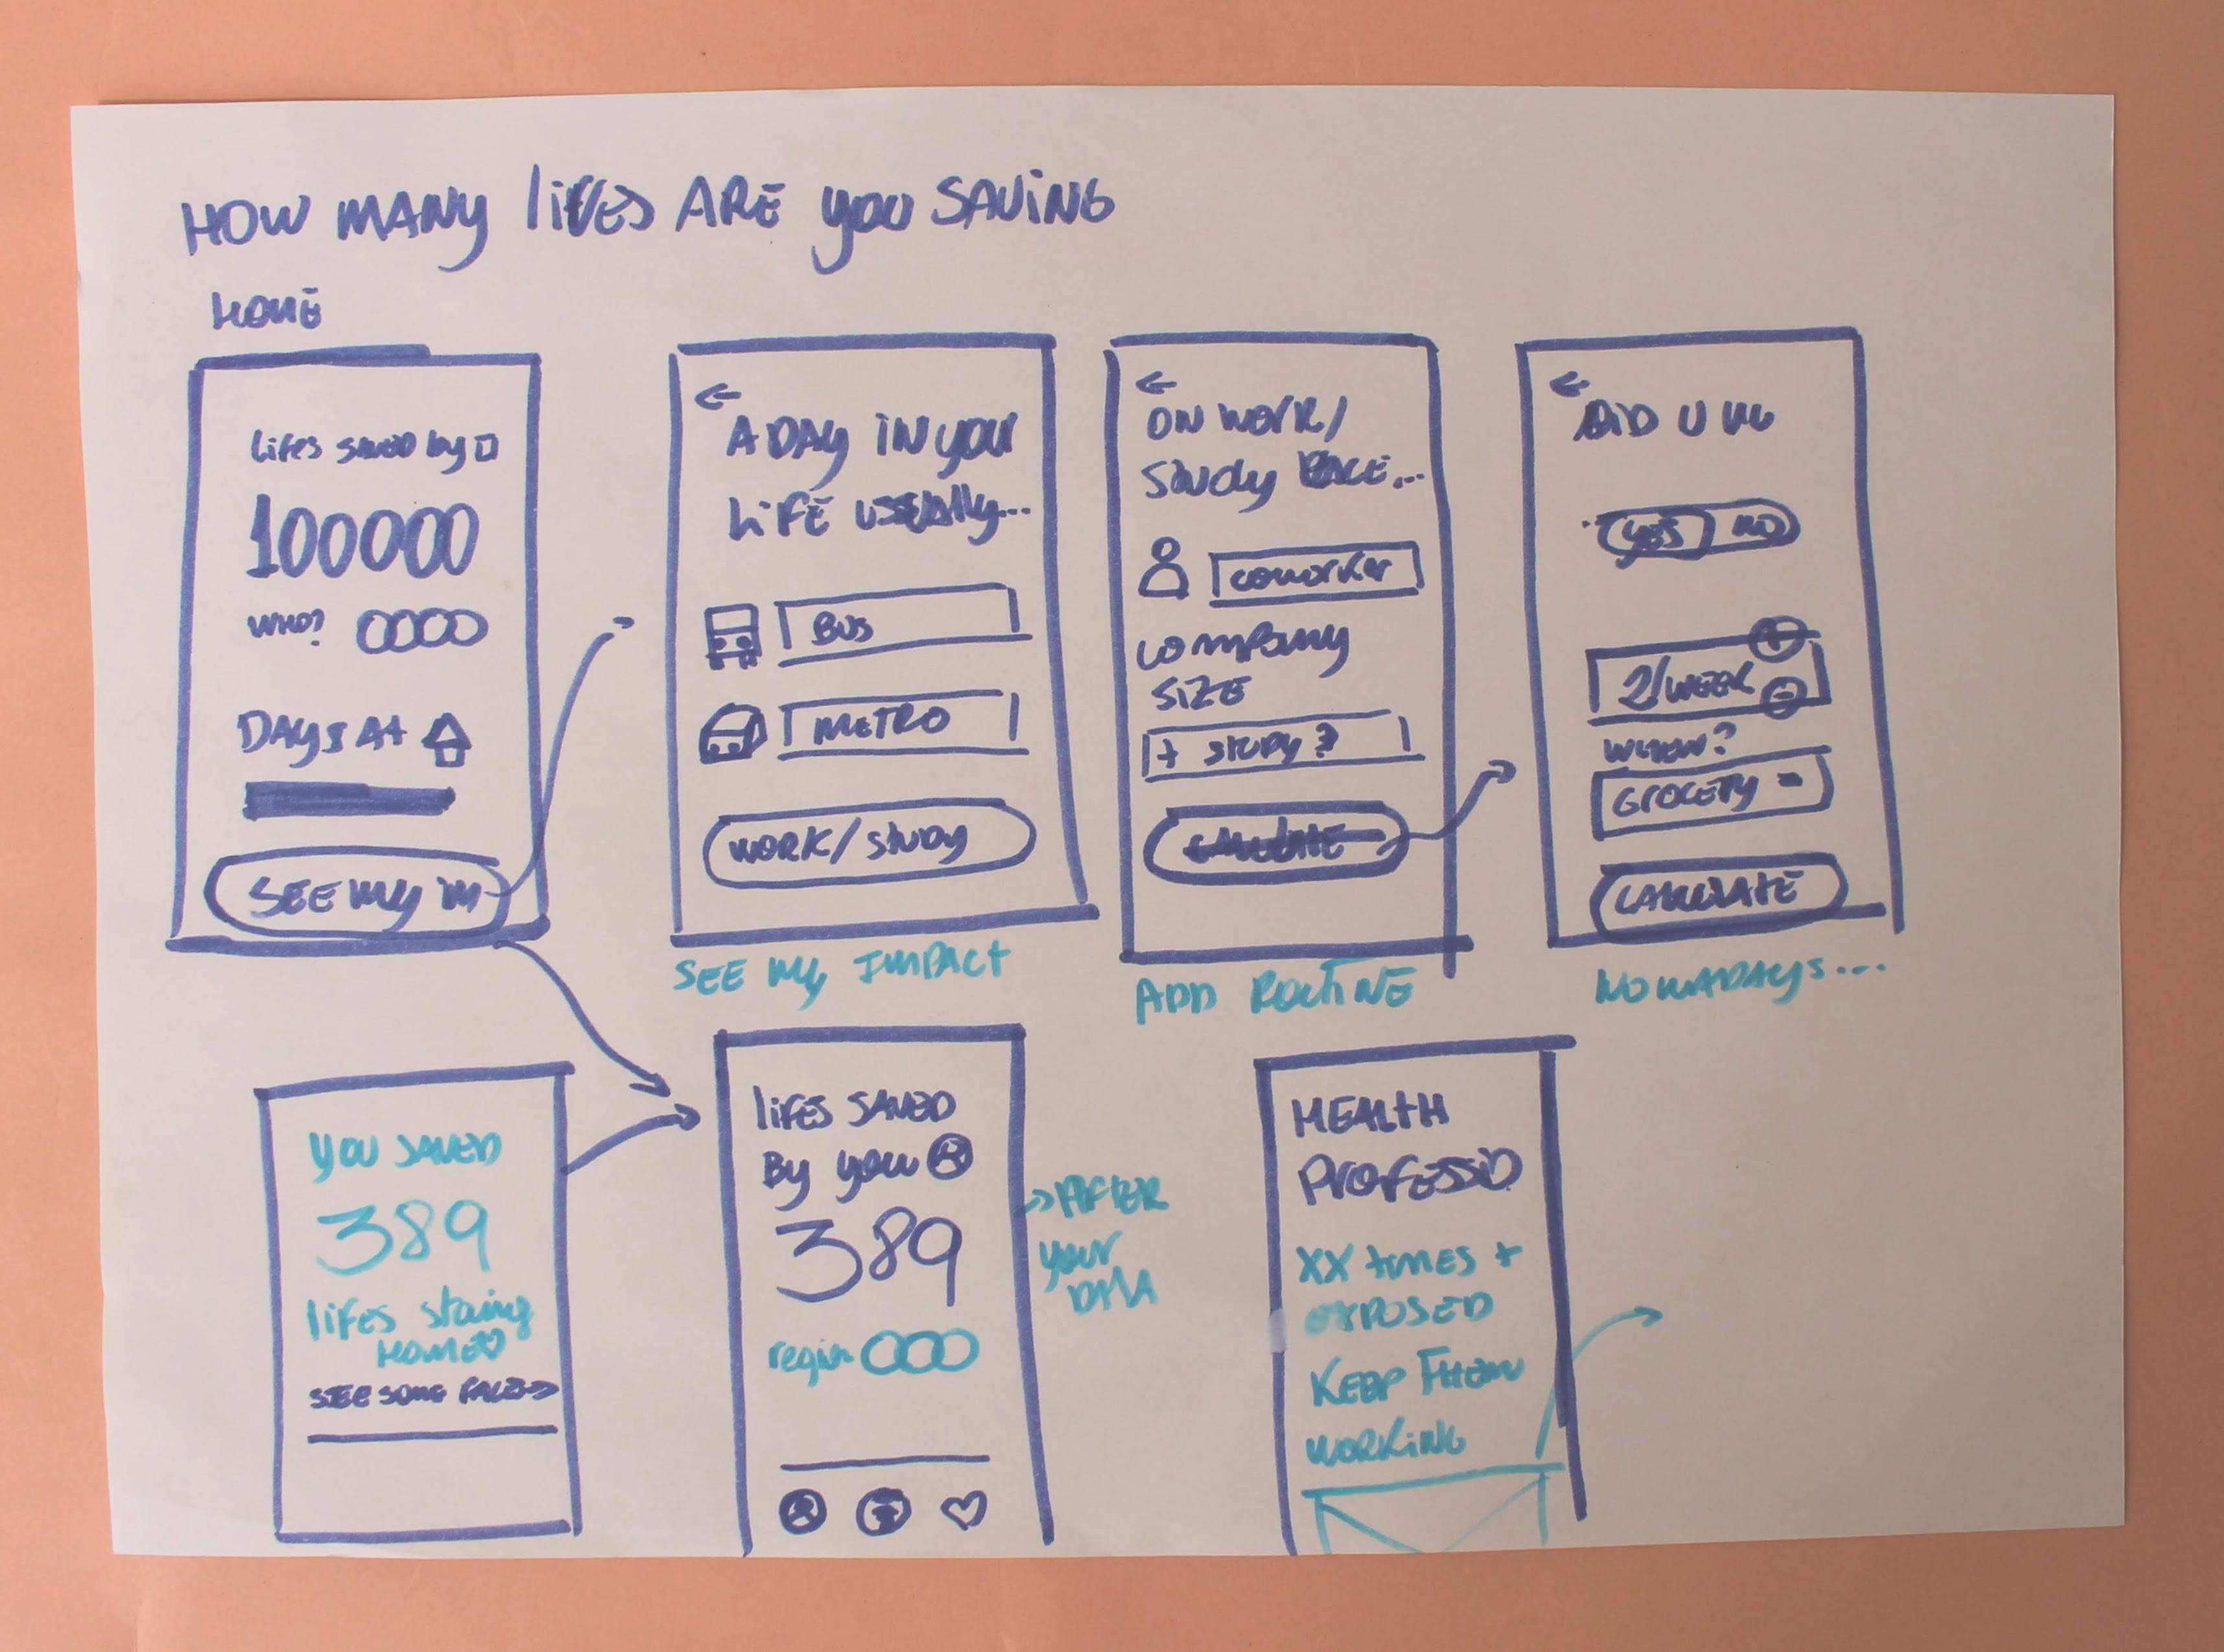 HOW MANY lIVES ARE you SAVING
HOME
Lifes saved by
100000
WHO?
DAYS At
SEE My IM
A DAY IN your
LIFE USUAlly...
BUS
METRO
WORK/STUDY
SEE My IMPACT
ON WORK/
Study PLACE...
COWORKER
COMPANY
SIZE
+ STUDY?
CALCULATE
ADD ROUTINE
DID U
YES NO
2/WEEK
+
-
WHEN?
GROCETY
CALCULATE
NOWADAYS...
you SAVED
389
lifes staing
HOME
SEE SOME FACES
lifes SAVED
By you
389
region
AFTER
your
DATA
HEALtH
PROFESSIO
XX tIMES +
EXPOSED
KEEP THEM
WORKING